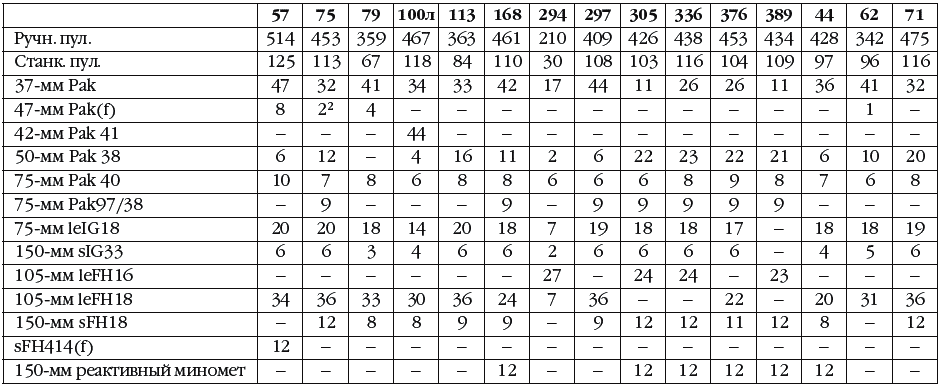 57 75 79 100л 113 168 294 297 305 336 376 389 44 62 71
Ручн. пул. 514 453 359 467 363 461 210 409 426 438 453 434 428 342 475
Станк. пул. 125 113 67 118 84 110 30 108 103 116 104 109 97 96 116
37-мм Pak 47 32 41 34 33 42 17 44 11 26 26 11 36 41 32
47-мм Pak(f) 8 2² 4 – – – – – – – – – – 1 –
42-мм Pak 41 – – – 44 – – – – – – – – – – –
50-мм Pak 38 6 12 – 4 16 11 2 6 22 23 22 21 6 10 20
75-мм Pak 40 10 7 8 6 8 8 6 6 6 8 9 8 7 6 8
75-мм Pak97/38 – 9 – – – 9 – 9 9 9 9 9 – – –
75-мм leIG18 20 20 18 14 20 18 7 19 18 18 17 – 18 18 19
150-мм sIG33 6 6 3 4 6 6 2 6 6 6 6 – 4 5 6
105-мм leFH16 – – – – – – 27 – 24 24 – 23 – – –
105-мм leFH18 34 36 33 30 36 24 7 36 – – 22 – 20 31 36
150-мм sFH18 – 12 8 8 9 9 – 9 12 12 11 12 8 – 12
sFH414(f) 12 – – – – – – – – – – – – – –
150-мм реактивный миномет – – – – – 12 – – 12 12 12 12 12 – –